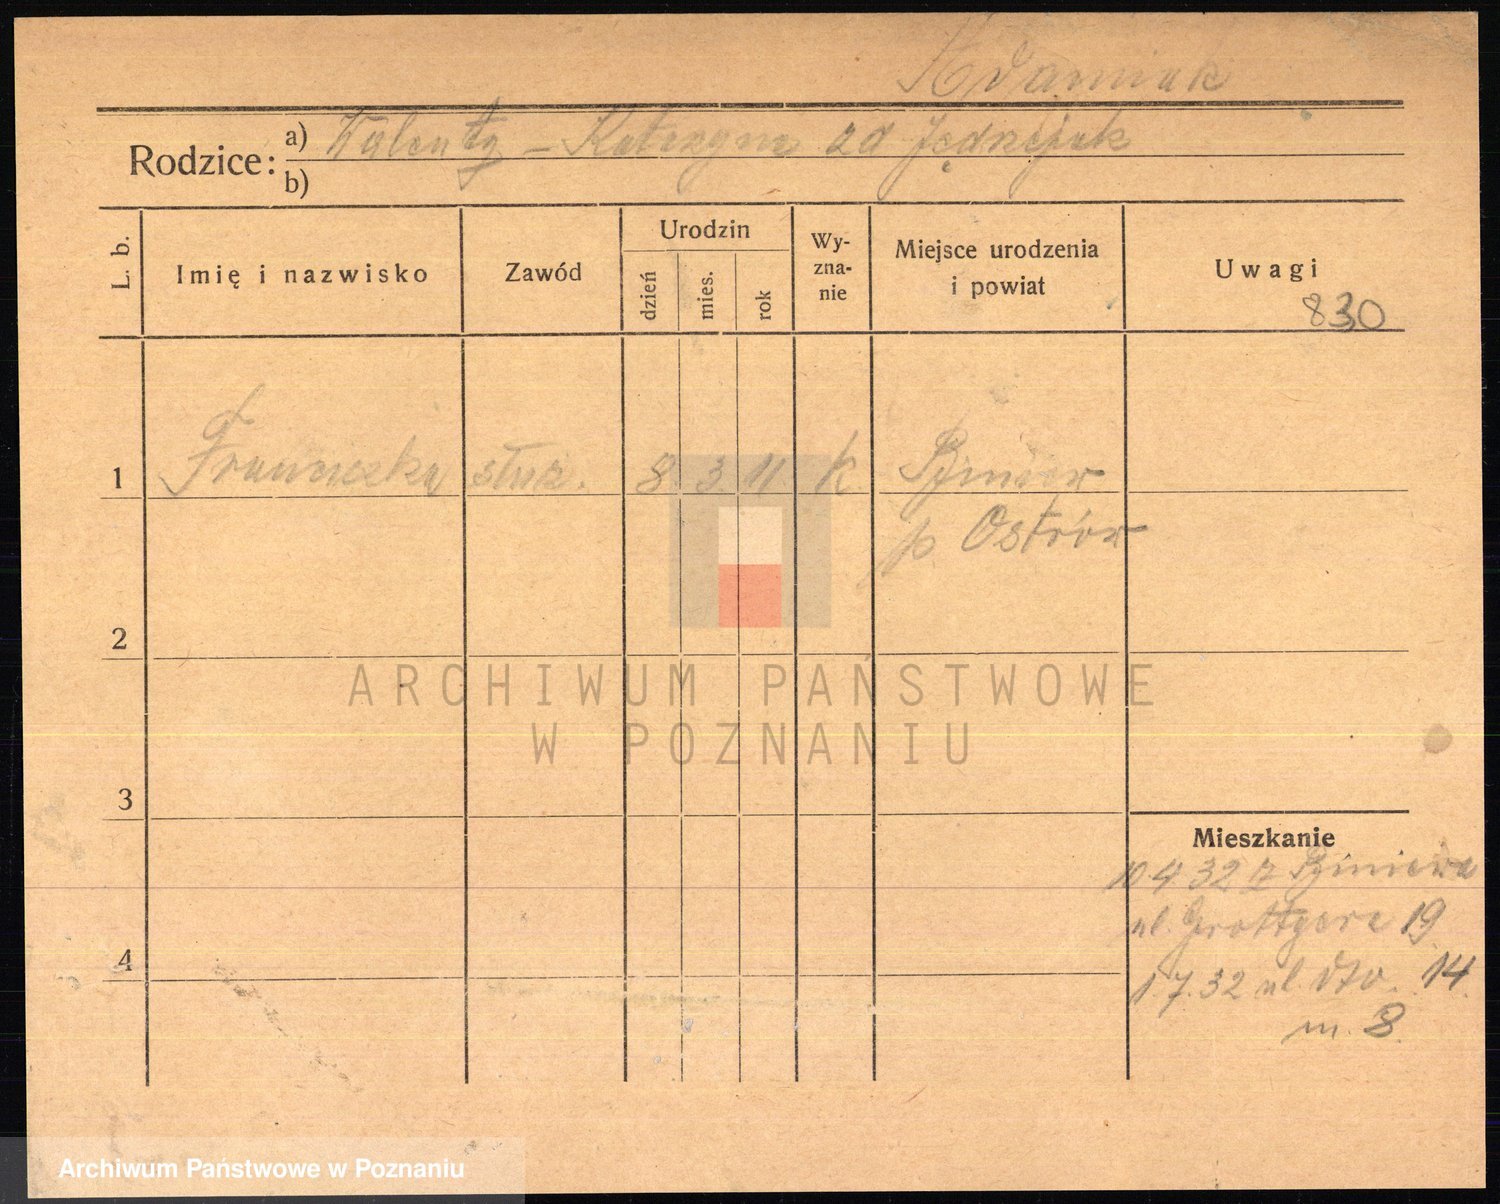 Adamiak
Rodzice: a) Walenty – Katarzyna zd Jędrzejak
b)
L. b. Imię i nazwisko Zawód Urodzin dzień mies. rok Wyznanie Miejsce urodzenia i powiat Uwagi
830
1 Franciszka służ. 8 3 11 K Biniew
p. Ostrów
2
3
4
Mieszkanie
10.4.32 z Biniewa
ul. Grottgera 19
1.7.32 ul. dto. 14
m. 8.
ARCHIWUM PAŃSTWOWE
W POZNANIU
Archiwum Państwowe w Poznaniu